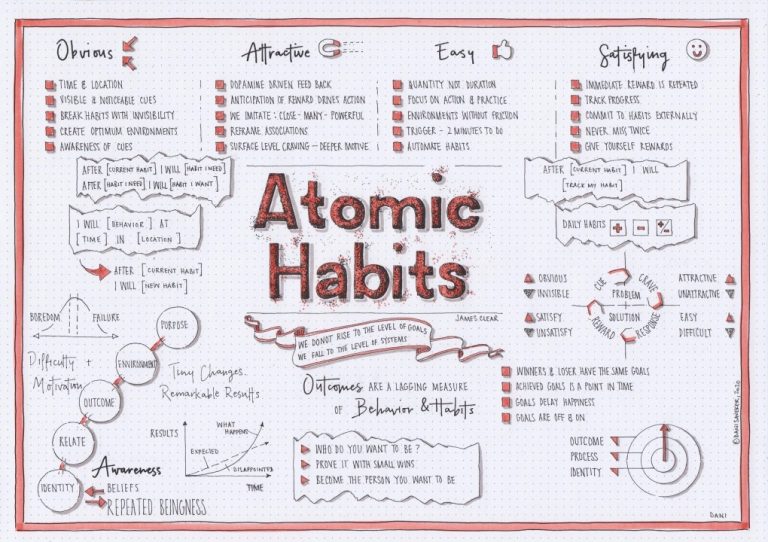 Obvious
TIME & LOCATION
VISIBLE & NOTICEABLE CUES
BREAK HABITS WITH INVISIBILITY
CREATE OPTIMUM ENVIRONMENTS
AWARENESS OF CUES
Attractive
DOPAMINE DRIVEN FEED BACK
ANTICIPATION OF REWARD DRIVES ACTION
WE IMITATE: CLOSE - MANY - POWERFUL
REFRAME ASSOCIATIONS
SURFACE LEVEL CRAVING – DEEPER MOTIVE
Easy
QUANTITY NOT DURATION
FOCUS ON ACTION & PRACTICE
ENVIRONMENTS WITHOUT FRICTION
TRIGGER - 2 MINUTES TO DO
AUTOMATE HABITS
Satisfying
IMMEDIATE REWARD IS REPEATED
TRACK PROGRESS
COMMIT TO HABITS EXTERNALLY
NEVER MISS TWICE
GIVE YOURSELF REWARDS
AFTER [CURRENT HABIT] I WILL [HABIT I NEED]
AFTER [HABIT I NEED] I WILL [HABIT I WANT]
I WILL [BEHAVIOR] AT
[TIME] IN [LOCATION]
AFTER [CURRENT HABIT]
I WILL [NEW HABIT]
Atomic
Habits
JAMES CLEAR
WE DO NOT RISE TO THE LEVEL OF GOALS
WE FALL TO THE LEVEL OF SYSTEMS
AFTER [CURRENT HABIT] I WILL
[TRACK MY HABIT]
DAILY HABITS + - +/-
OBVIOUS
INVISIBLE
SATISFY
UNSATISFY
CUE
CRAVE
PROBLEM
SOLUTION
REWARD
RESPONSE
ATTRACTIVE
UNATTRACTIVE
EASY
DIFFICULT
BOREDOM
FAILURE
Difficulty +
Motivation
PURPOSE
ENVIRONMENT
OUTCOME
RELATE
IDENTITY
Tiny Changes.
Remarkable Results
Awareness
BELIEFS
REPEATED BEINGNESS
RESULTS
WHAT
HAPPENS
EXPECTED
DISAPPOINTED
TIME
Outcomes ARE A LAGGING MEASURE
OF Behavior & Habits
WHO DO YOU WANT TO BE?
PROVE IT WITH SMALL WINS
BECOME THE PERSON YOU WANT TO BE
WINNERS & LOSER HAVE THE SAME GOALS
ACHIEVED GOALS IS A POINT IN TIME
GOALS DELAY HAPPINESS
GOALS ARE OFF & ON
OUTCOME
PROCESS
IDENTITY
DANI